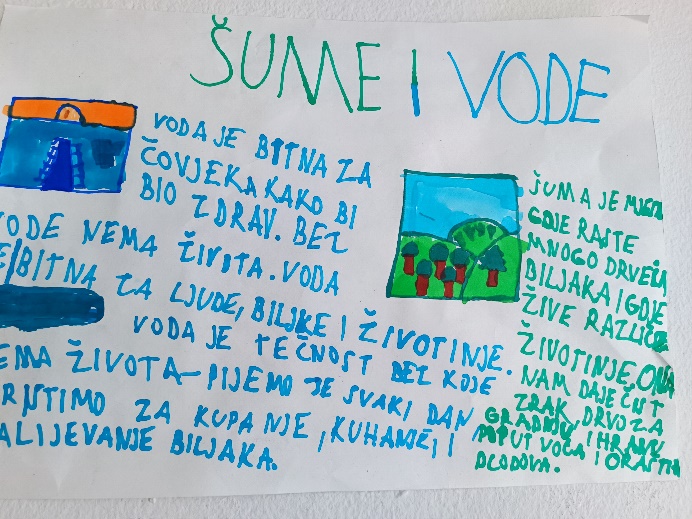 ŠUME I VODE
VODA JE BITNA ZA
ČOVJEKA KAKO BI
BIO ZDRAV. BEZ
VODE NEMA ŽIVOTA. VODA
JE BITNA ZA LJUDE, BILJKE I ŽIVOTINJE.
VODA JE TEČNOST BEZ KOJE
NEMA ŽIVOTA - PIJEMO JE SVAKI DAN
KORISTIMO ZA KUPANJE, KUHANJE, I
ZALIJEVANJE BILJAKA.
ŠUMA JE MJESTO
GDJE RASTE
MNOGO DRVEĆA
BILJAKA I GDJE
ŽIVE RAZLIČITE
ŽIVOTINJE, ONA
NAM DAJE ČIST
ZRAK, DRVO ZA
GRADNJU I HRANU
POPUT VOĆA I ORAŠTIH
PLODOVA.